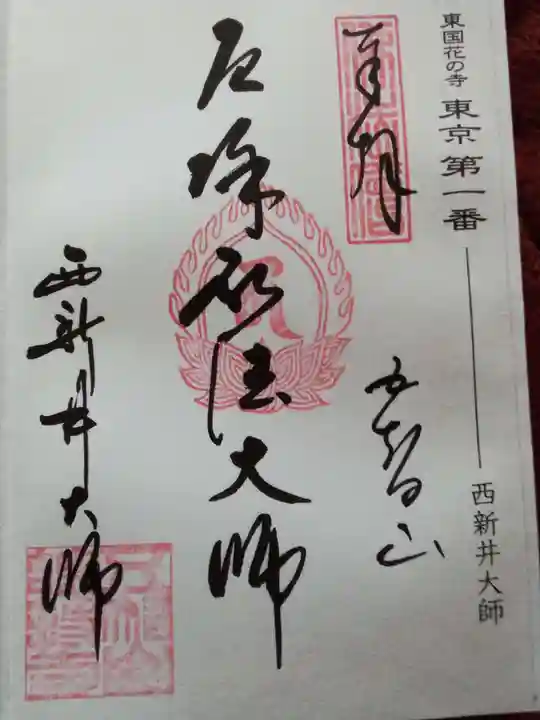 東国花の寺 東京第一番 ── 西新井大師
奉拝
五智山
厄除弘法大師
西新井大師